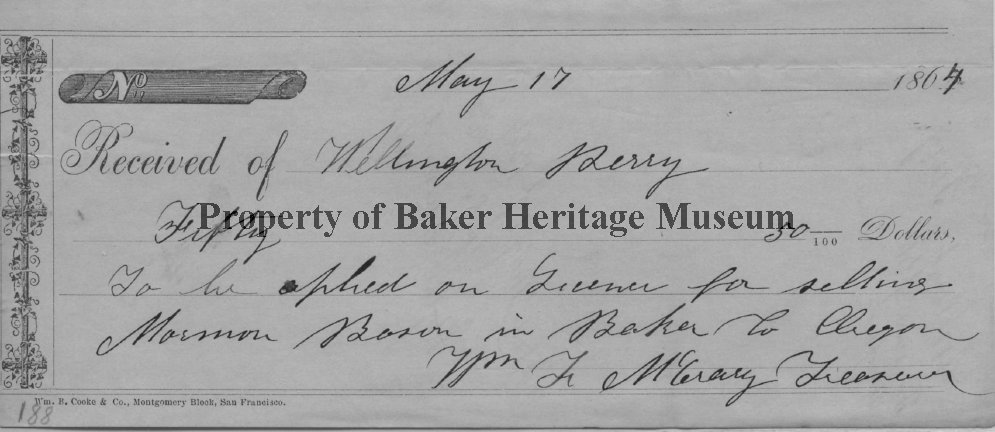 No.
May 17 1864
Received of Wellington Perry
Fifty 50/100 Dollars,
Property of Baker Heritage Museum
To be aplied on Licence for selling
Mormon Bason in Baker Co Oregon
Wm F McCrary Treasurer
Wm. B. Cooke & Co., Montgomery Block, San Francisco.
188